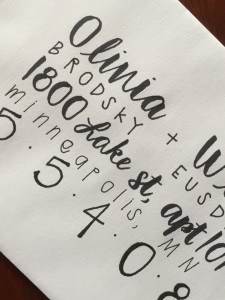 Olinia + W
BRODSKY EUSD
1800 Lake st, apt 10
minneapolis, MN
5.5.4.0.8